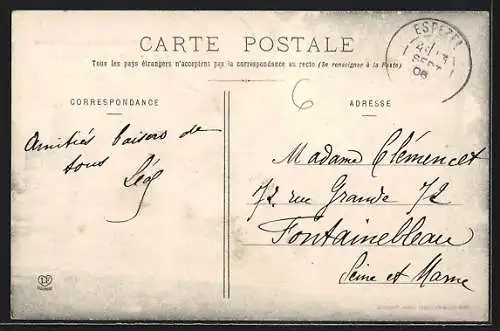 CARTE POSTALE
Tous les pays étrangers n'acceptent pas la correspondance au recto (Se renseigner à la Poste)
ESPEZEL
SEPT
06
CORRESPONDANCE
ADRESSE
6
Amitiés baisers de
tous
Madame Clémencet
72 rue Grande 72
Fontainebleau
Seine et Marne